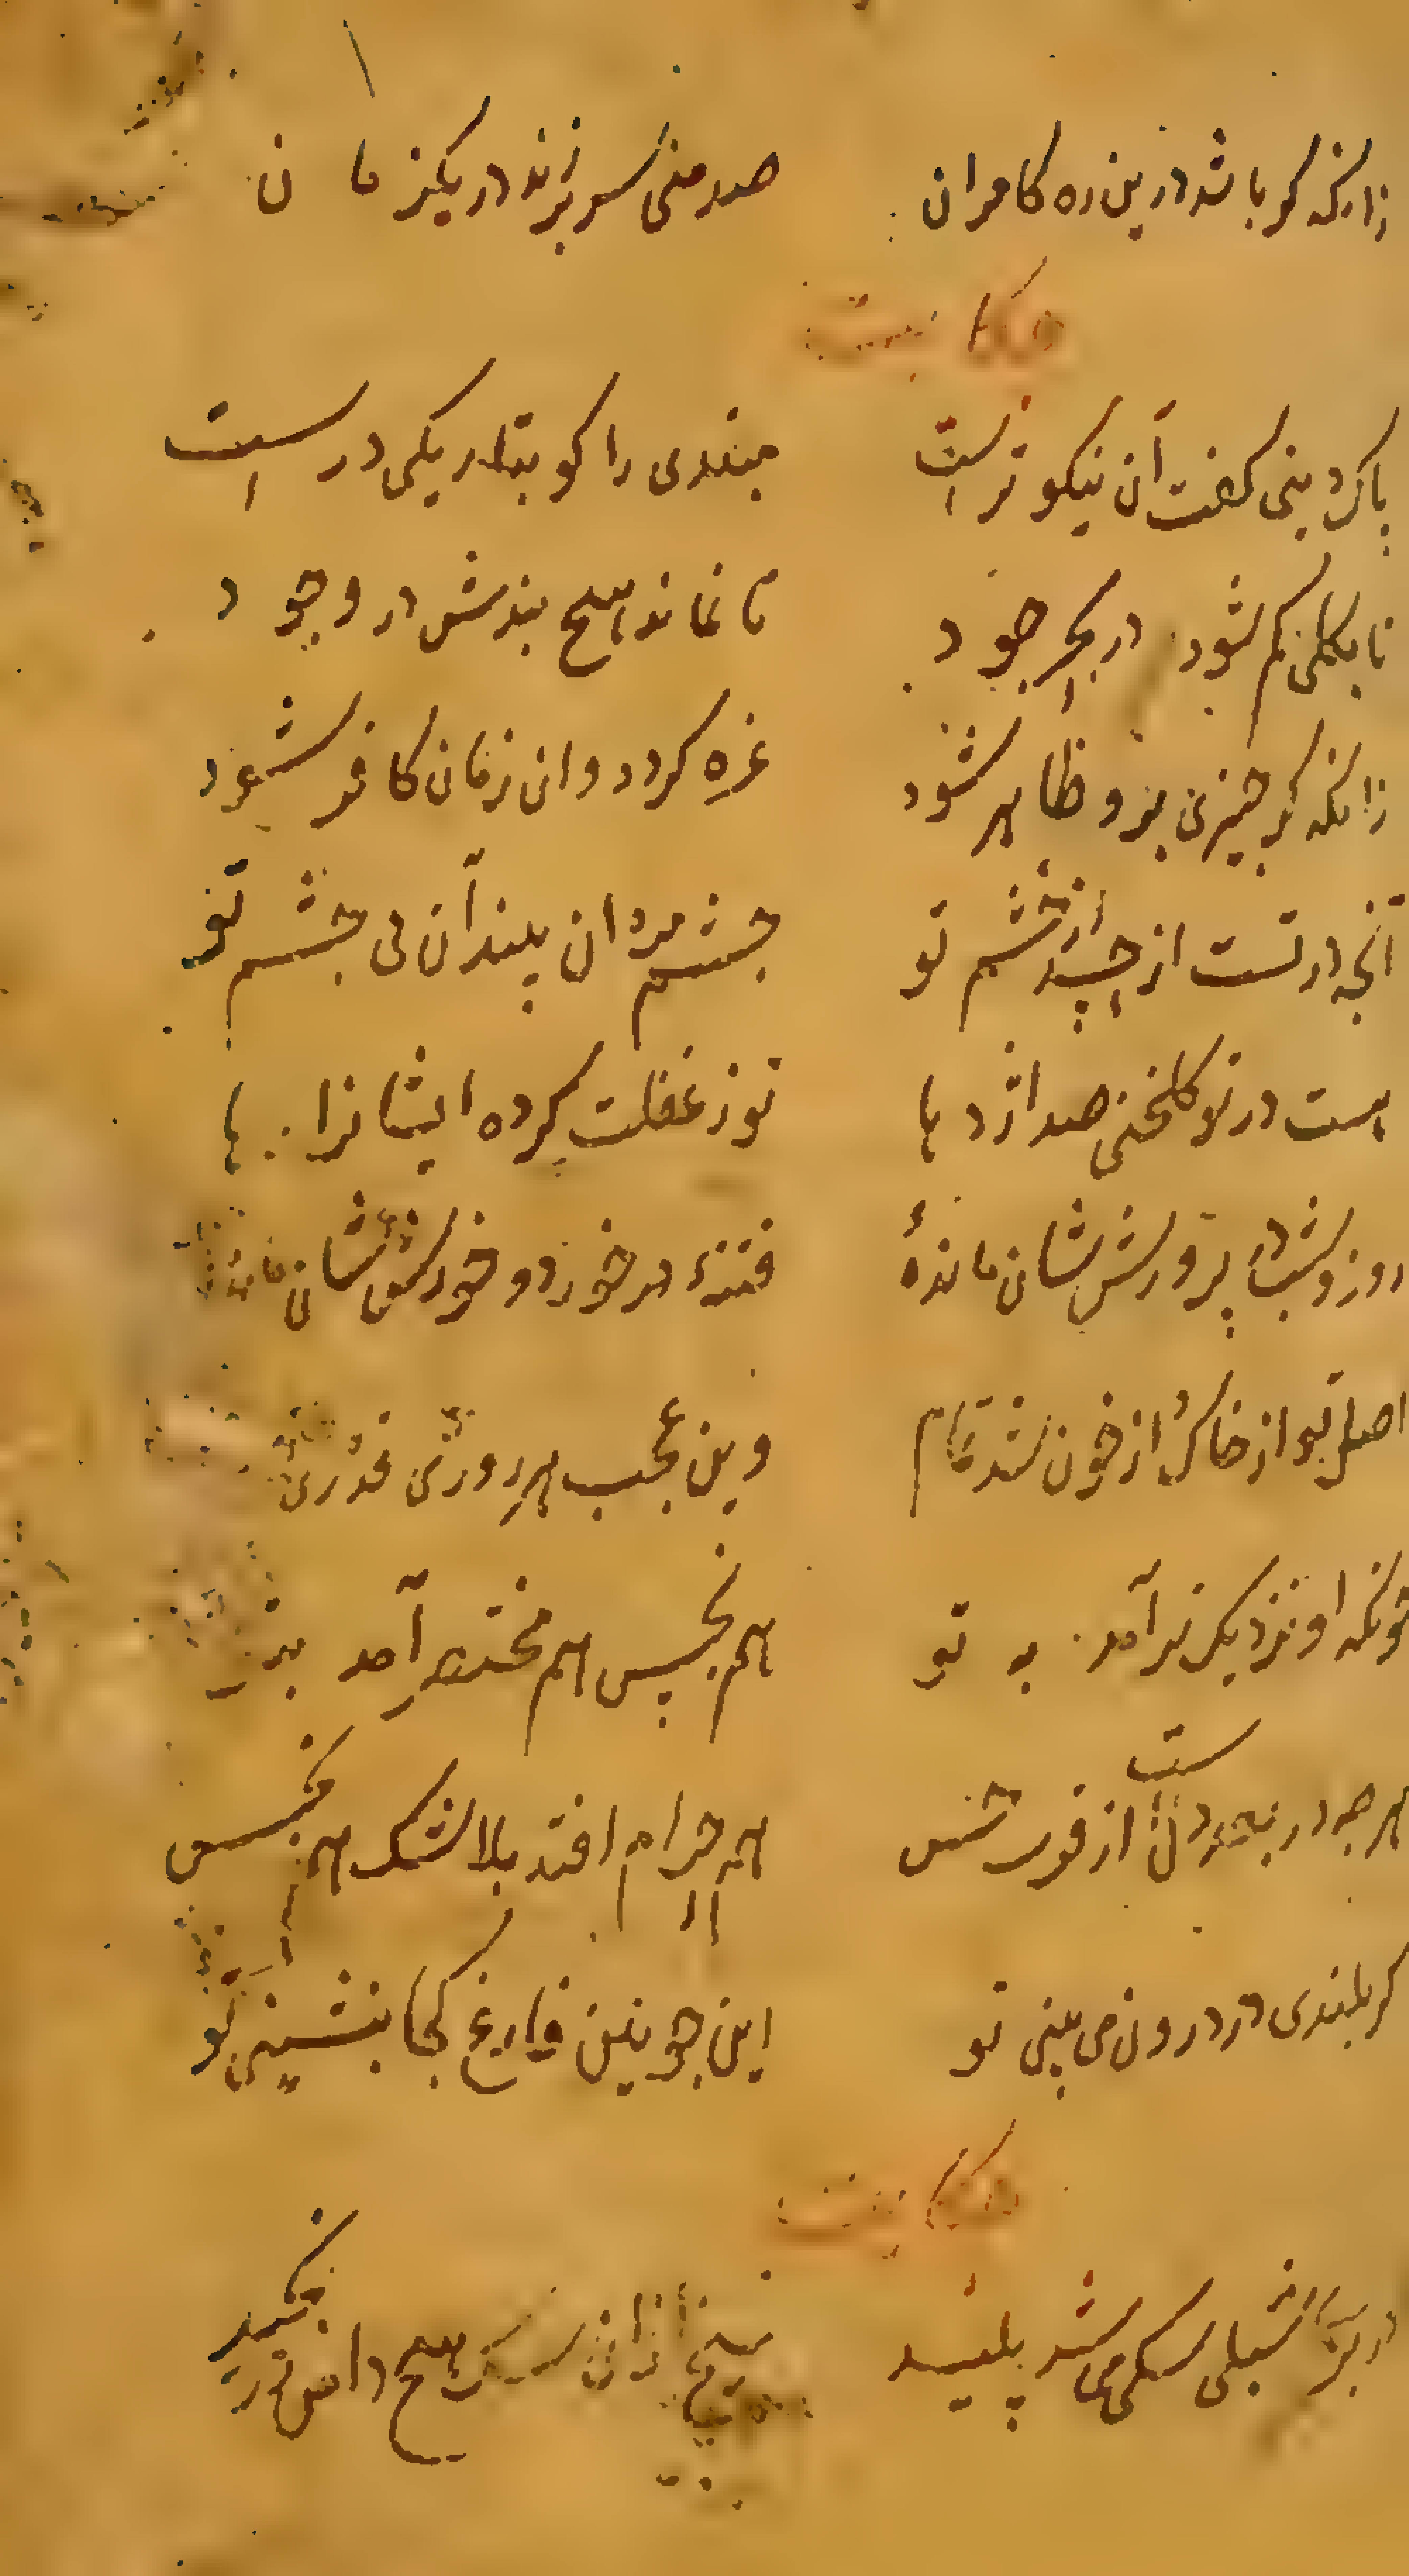 زانکه کر باشد درین ره کامران صد منی سر برزند در یکزمان
حکایت
پاک دینی کفت آن نیکوترست مبتدی را کو بتاریکی درست
تا بکلی کم شود در بحر جود تا نماند هیچ بندش در وجود
زانکه کر چیزی برو ظاهر شود غره کردد وان زمان کافر شود
آنچه در تست از حسد از خشم تو چشم مردان بیند آن نی چشم تو
هست در تو کلخنی صد اژدها تو ز غفلت کرده ایشانرا رها
روز و شب در پرورش شان ماندهٔ فتنهٔ در خورد و خورش شان ماندهٔ
اصل تو از خاک از خون شد تمام وین عجب هر دوری قدری
خونکه او نزدیک تر آمد به تو هم نجس هم مختصر آمد
هر چه در بعد دلست از قرب شس هم حرام افتد بلا شک هم نجس
کر بلندی در درون می بینی تو این چونین فارغ کجا بنشینی تو
حکایت
در بر شبلی سکی می شد پلید شیخ ازان سک هیچ دامن در نچید